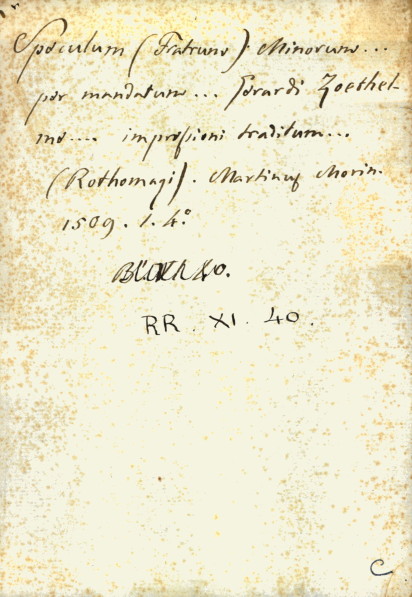 Speculum (Fratrum) Minorum...
per mandatum... Gerardi Zoethel-
me.... impressioni traditum...
(Rothomagi). Martinus Morin.
1509. 1. 4.º
40.
RR. XI. 40.
C